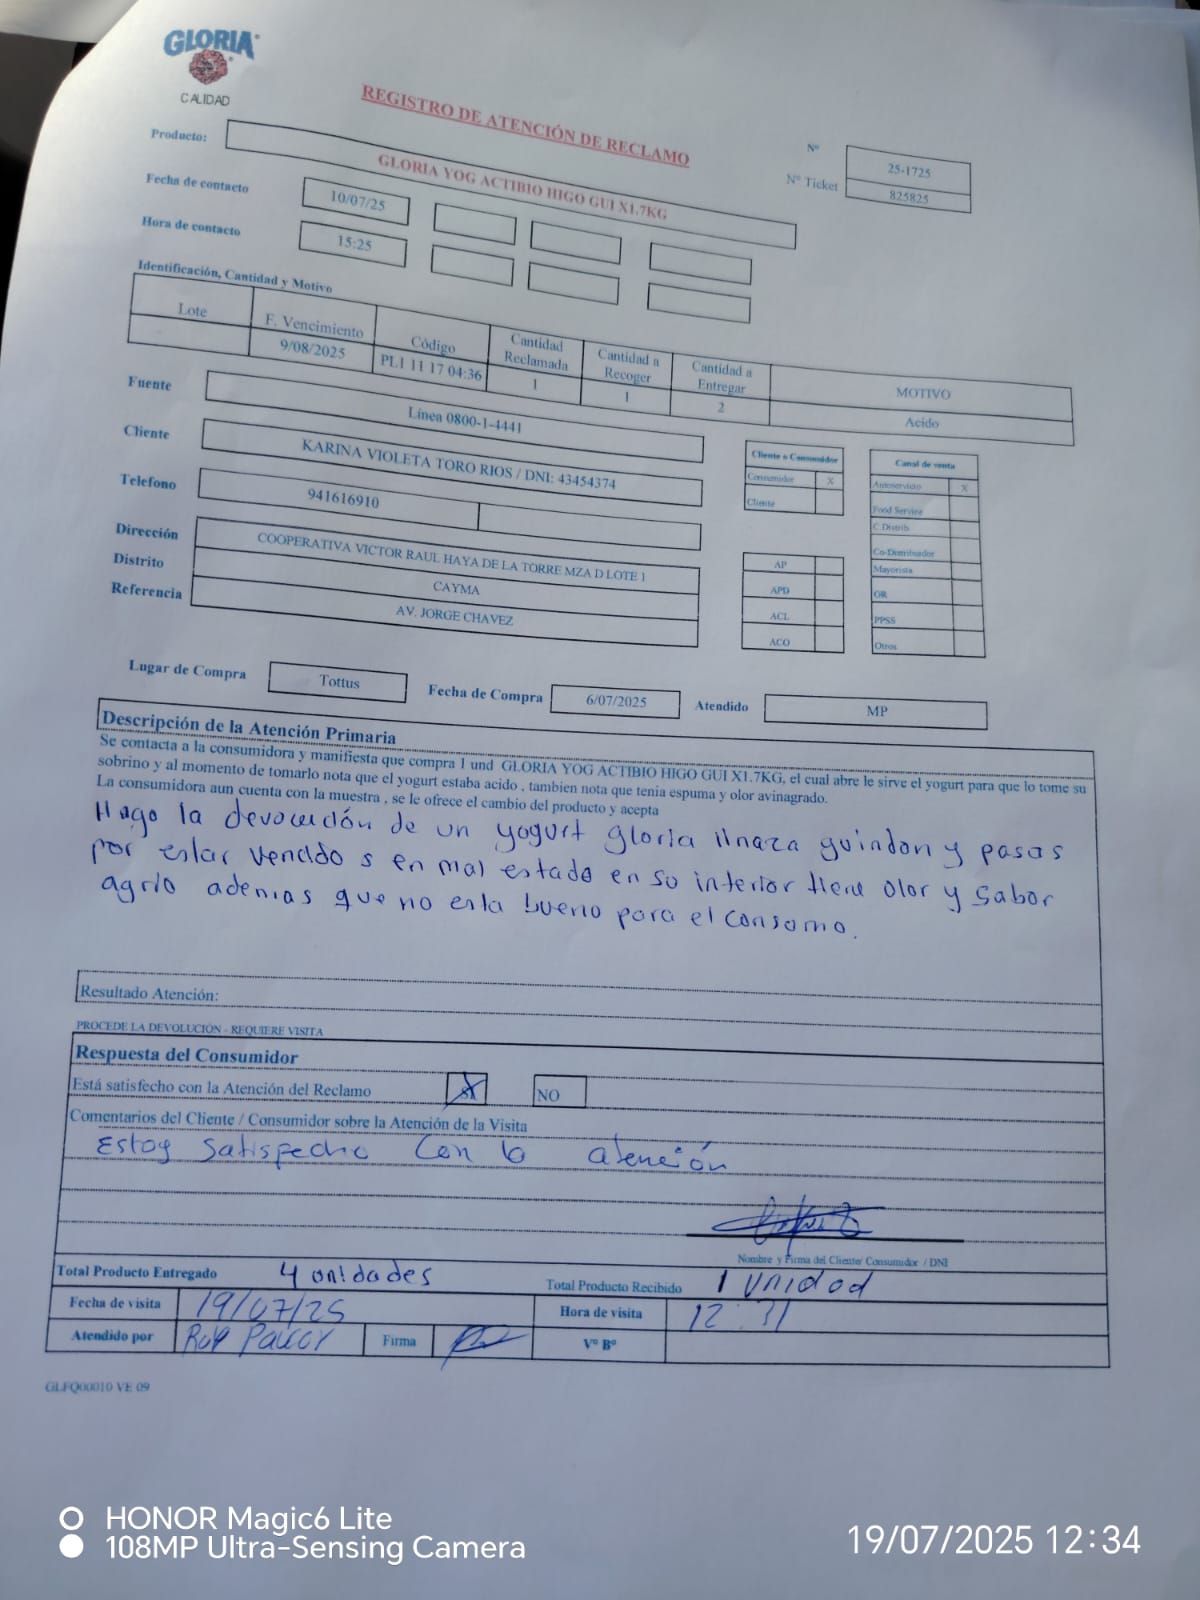 GLORIA
CALIDAD
REGISTRO DE ATENCIÓN DE RECLAMO
Nº 25-1725
Nº Ticket 825825
Producto: GLORIA YOG ACTIBIO HIGO GUI X1.7KG
Fecha de contacto 10/07/25
Hora de contacto 15:25
Identificación, Cantidad y Motivo
Lote F. Vencimiento Código Cantidad Reclamada Cantidad a Recoger Cantidad a Entregar MOTIVO
9/08/2025 PL1 11 17 04:36 1 1 2 Acido
Fuente Línea 0800-1-4441
Cliente KARINA VIOLETA TORO RIOS / DNI: 43454374
Telefono 941616910
Dirección COOPERATIVA VICTOR RAUL HAYA DE LA TORRE MZA D LOTE 1
Distrito CAYMA
Referencia AV. JORGE CHAVEZ
Cliente o Consumidor
Consumidor X
Cliente
AP
APD
ACL
ACO
Canal de venta
Autoservicio X
Food Service
C.Distrib.
Co-Distribuidor
Mayorista
OR
PPSS
Otros
Lugar de Compra Tottus Fecha de Compra 6/07/2025 Atendido MP
Descripción de la Atención Primaria
Se contacta a la consumidora y manifiesta que compra 1 und GLORIA YOG ACTIBIO HIGO GUI X1.7KG, el cual abre le sirve el yogurt para que lo tome su
sobrino y al momento de tomarlo nota que el yogurt estaba acido , tambien nota que tenia espuma y olor avinagrado.
La consumidora aun cuenta con la muestra , se le ofrece el cambio del producto y acepta
Hago la devolución de un yogurt gloria linaza guindon y pasas
por estar vencido s en mal estado en su interior tiene olor y sabor
agrio ademas que no esta bueno para el consumo.
Resultado Atención:
PROCEDE LA DEVOLUCIÓN - REQUIERE VISITA
Respuesta del Consumidor
Está satisfecho con la Atención del Reclamo SI NO
Comentarios del Cliente / Consumidor sobre la Atención de la Visita
Estoy satisfecho con la atención
Nombre y Firma del Cliente/ Consumidor / DNI
Total Producto Entregado 4 unidades Total Producto Recibido 1 unidad
Fecha de visita 19/07/25 Hora de visita 12:31
Atendido por Firma Vº Bº
GLFQ00010 VE 09
HONOR Magic6 Lite
108MP Ultra-Sensing Camera
19/07/2025 12:34